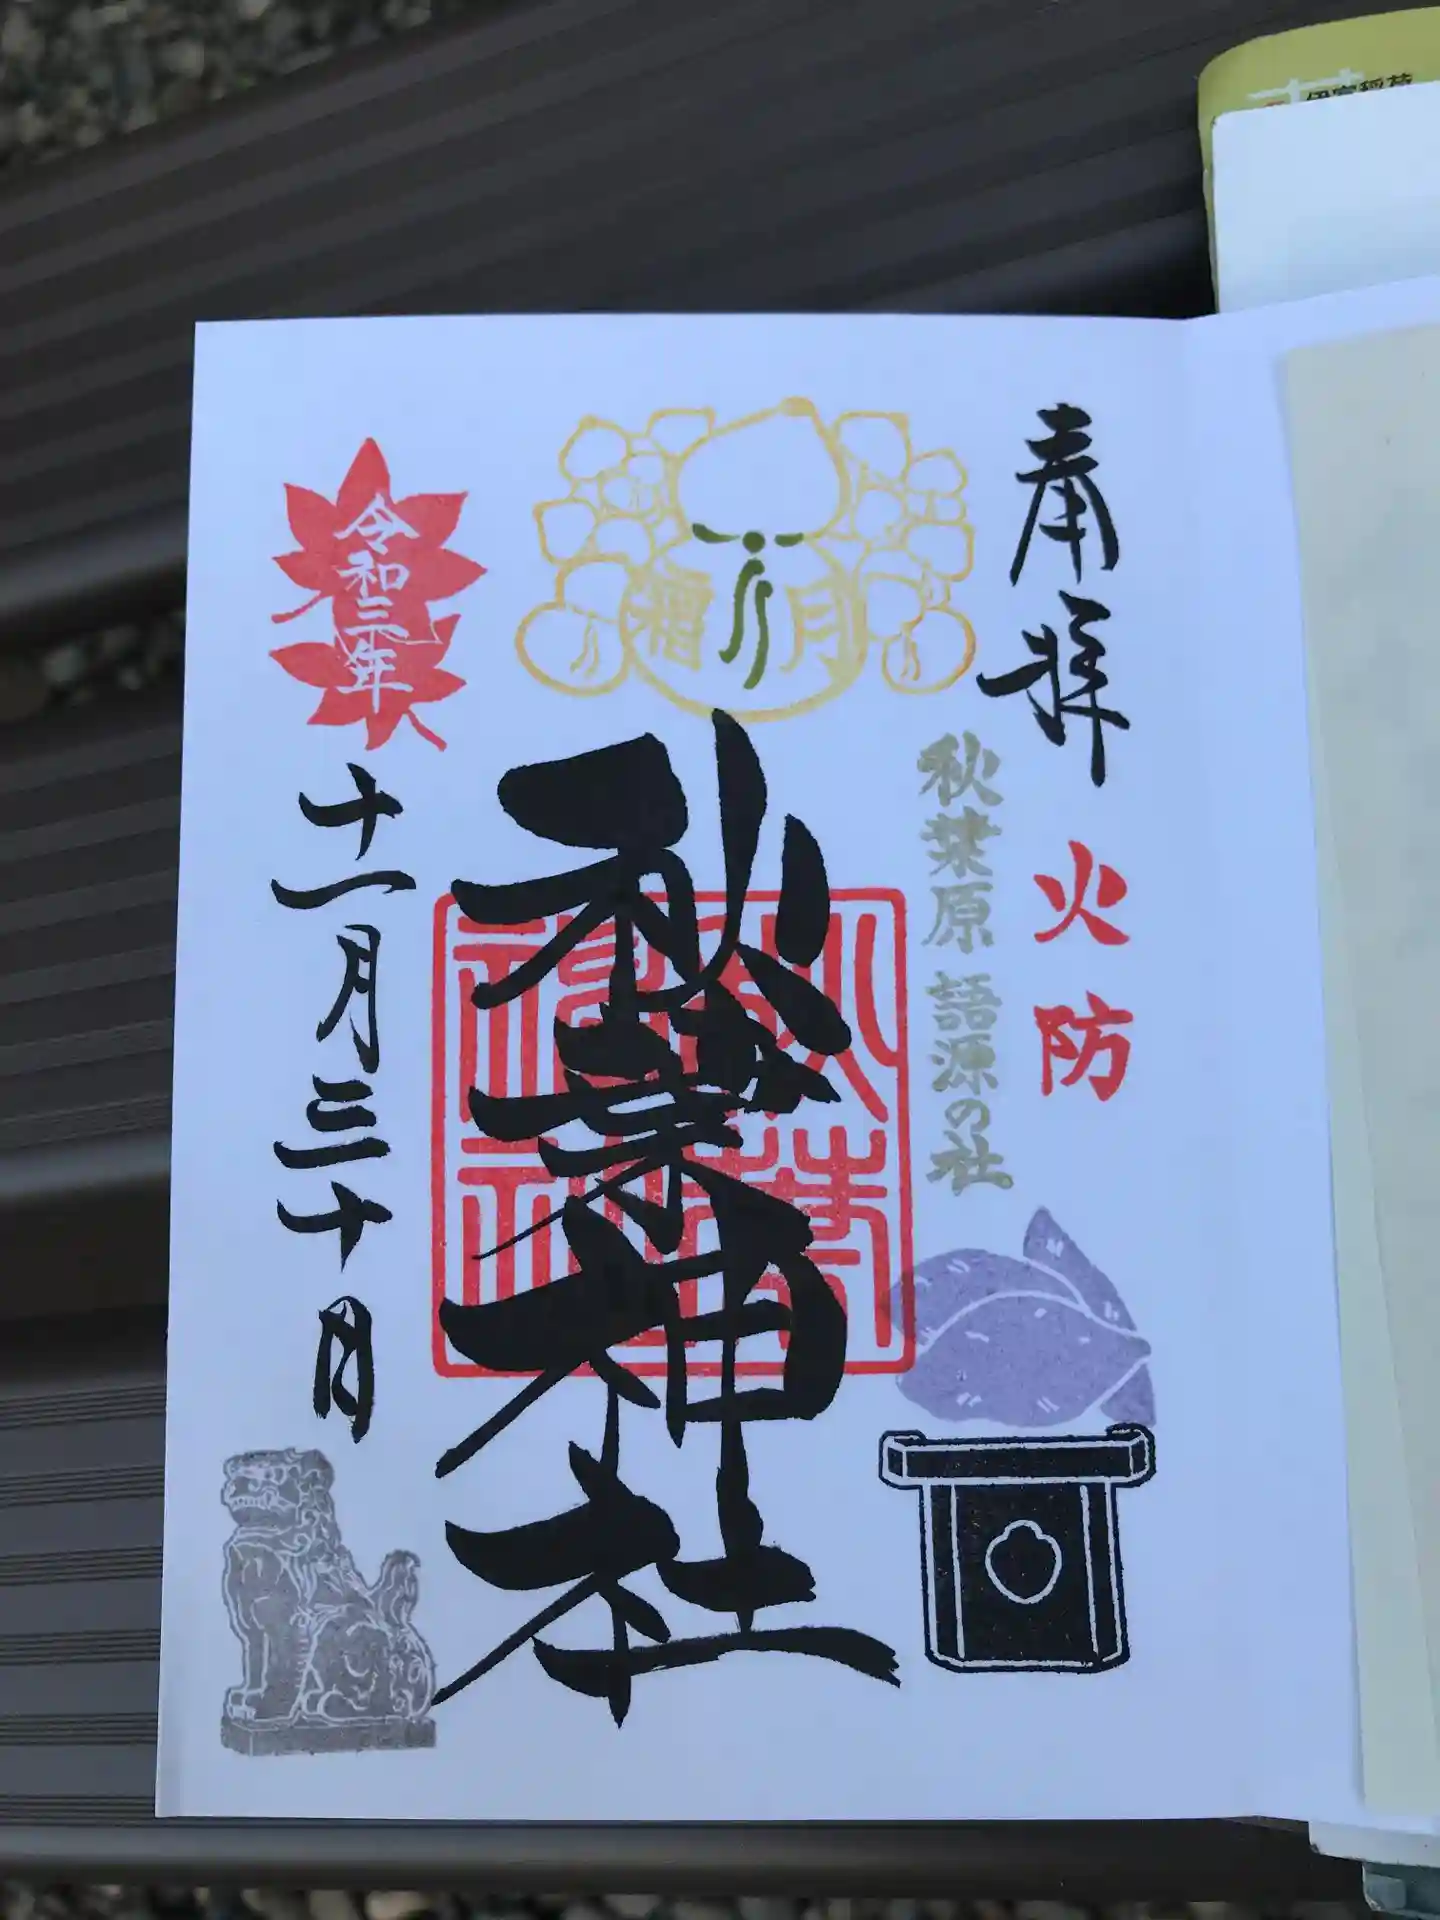 奉拝
火防
秋葉原 語源の社
霜月
秋葉神社
秋葉神社
令和三年
十一月三十日